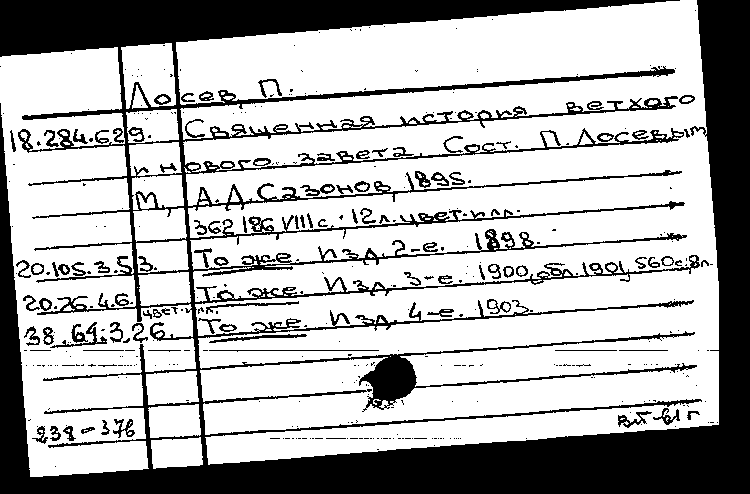 Лосев, П.
18.284.629. Священная история ветхого
и нового завета. Сост. П. Лосевым
М., А.Д. Сазонов, 1895.
362, 186, VIII с.; 12 л. цвет. илл.
20.105.3.53. То же. Изд. 2-е. 1898.
20.76.4.6. То же. Изд. 3-е. 1900, обл. 1901, 560 с., 8 л.
цвет. илл.
38.64.3.26. То же. Изд. 4-е. 1903.
238-376